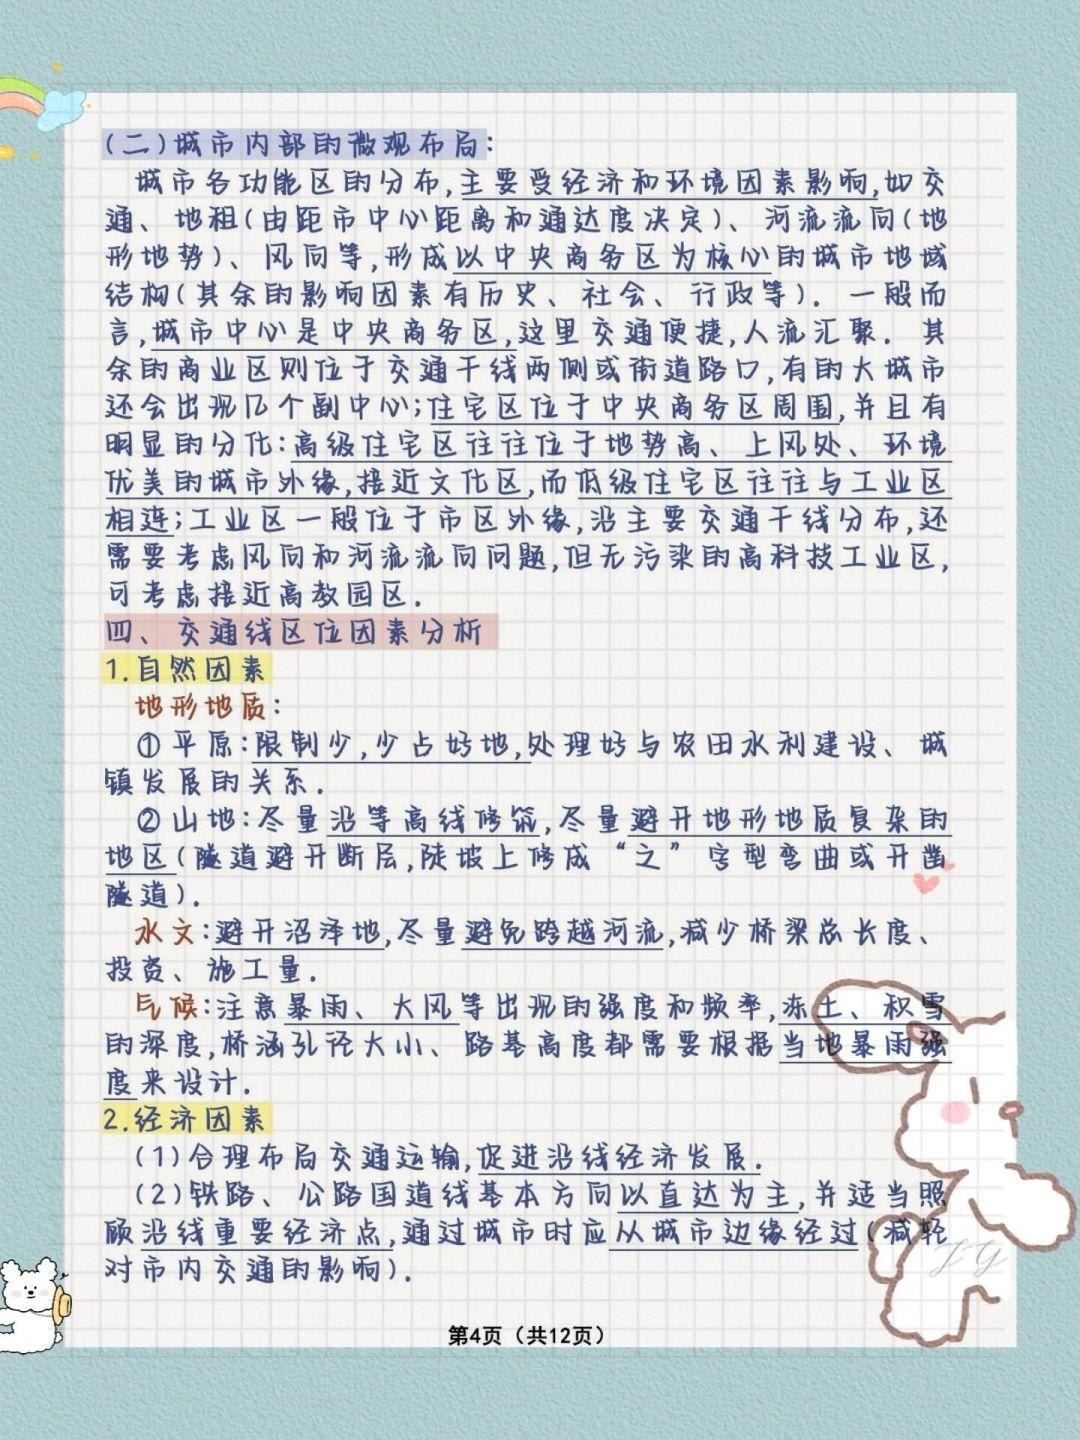 (二)城市内部的微观布局:
城市各功能区的分布,主要受经济和环境因素影响,如交
通、地租(由距市中心距离和通达度决定)、河流流向(地
形地势)、风向等,形成以中央商务区为核心的城市地域
结构(其余的影响因素有历史、社会、行政等). 一般而
言,城市中心是中央商务区,这里交通便捷,人流汇聚. 其
余的商业区则位于交通干线两侧或街道路口,有的大城市
还会出现几个副中心;住宅区位于中央商务区周围,并且有
明显的分化:高级住宅区往往位于地势高、上风处、环境
优美的城市外缘,接近文化区,而低级住宅区往往与工业区
相连;工业区一般位于市区外缘,沿主要交通干线分布,还
需要考虑风向和河流流向问题,但无污染的高科技工业区,
可考虑接近高教园区.
四、交通线区位因素分析
1.自然因素
地形地质:
①平原:限制少,少占好地,处理好与农田水利建设、城
镇发展的关系.
②山地:尽量沿等高线修筑,尽量避开地形地质复杂的
地区(隧道避开断层,陡坡上修成“之”字型弯曲或开凿
隧道).
水文:避开沼泽地,尽量避免跨越河流,减少桥梁总长度、
投资、施工量.
气候:注意暴雨、大风等出现的强度和频率,冻土、积雪
的深度,桥涵孔径大小、路基高度都需要根据当地暴雨强
度来设计.
2.经济因素
(1)合理布局交通运输,促进沿线经济发展.
(2)铁路、公路国道线基本方向以直达为主,并适当照
顾沿线重要经济点,通过城市时应从城市边缘经过(减轻
对市内交通的影响).
JG
第4页（共12页）